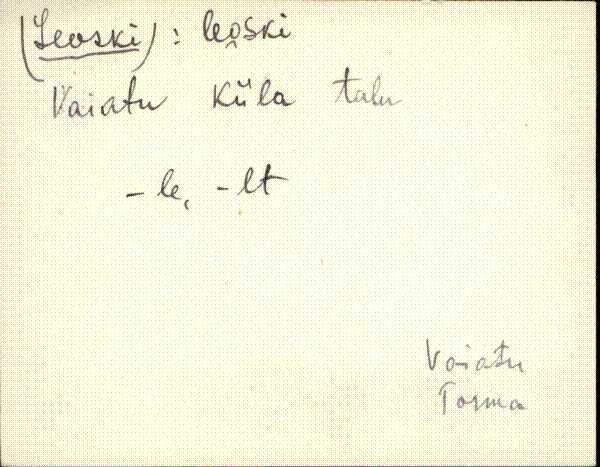 (Leoski) : leo̭ski
Vaiatu küla talu
- le, - lt
Vaiatu
Torma